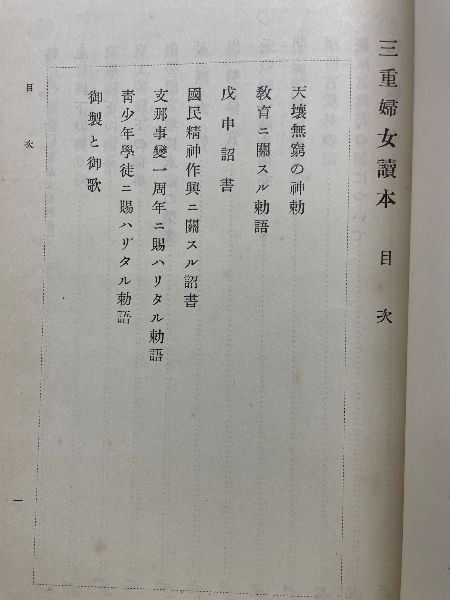 三重婦女讀本 目次
天壤無窮の神勅
敎育ニ關スル勅語
戊申詔書
國民精神作興ニ關スル詔書
支那事變一周年ニ賜ハリタル勅語
靑少年學徒ニ賜ハリタル勅語
御製と御歌
目次
一